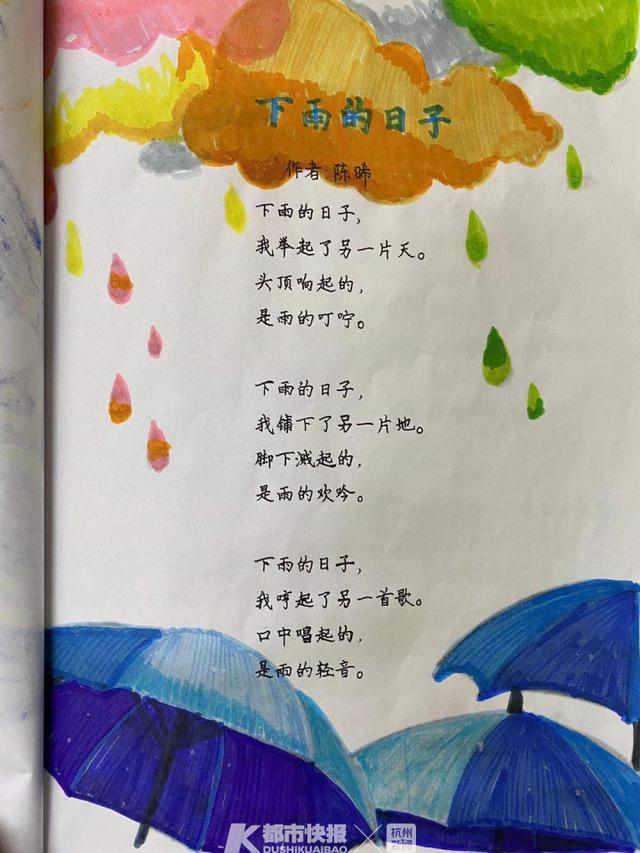 下雨的日子
作者:陈晞
下雨的日子,
我举起了另一片天。
头顶响起的,
是雨的叮咛。
下雨的日子,
我铺下了另一片地。
脚下溅起的,
是雨的欢吟。
下雨的日子,
我哼起了另一首歌。
口中唱起的,
是雨的轻音。
都市快报
DUSHIKUAIBAO
×
杭州
新闻